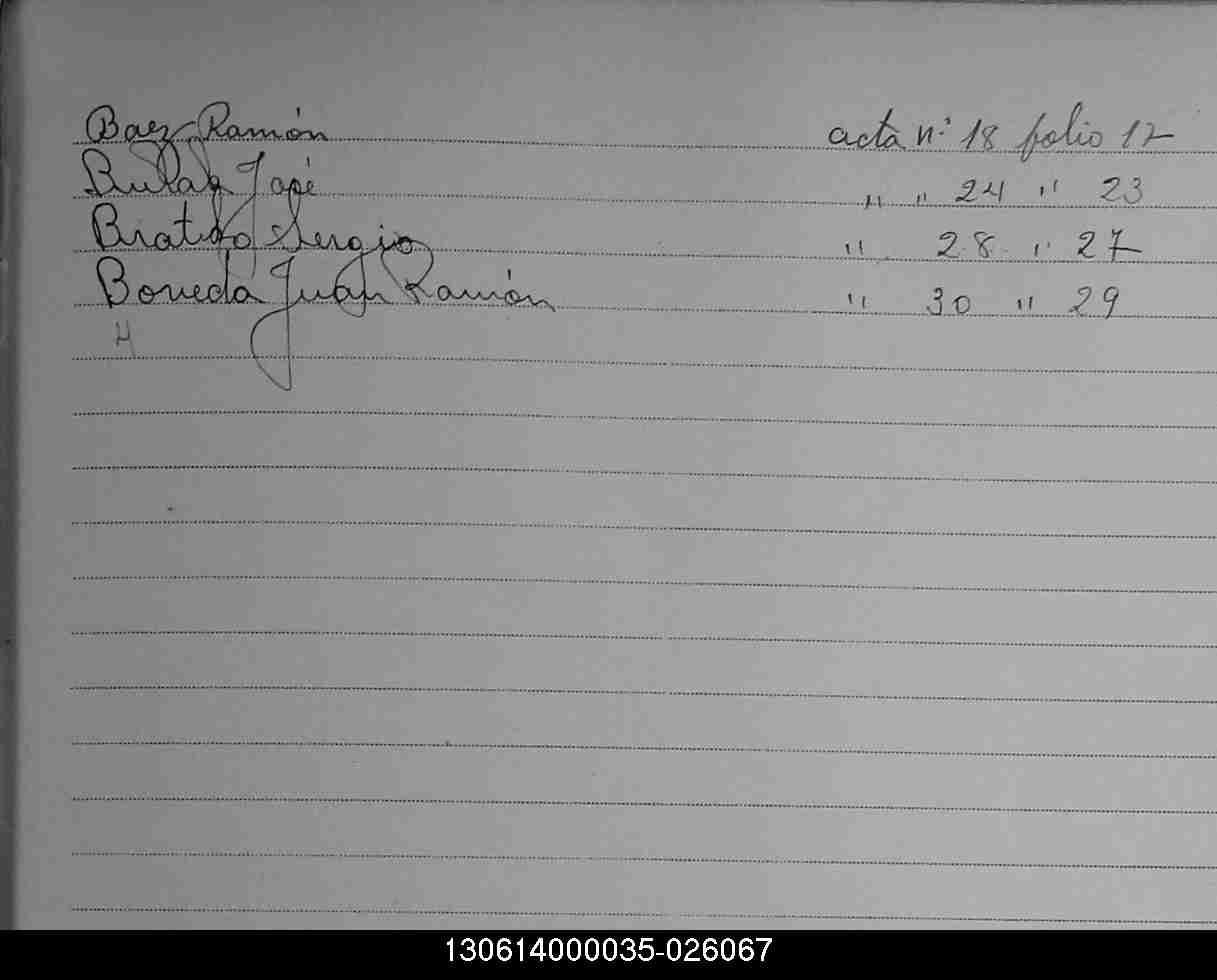 Baez Ramón acta n.º 18 folio 17
José " " 24 " 23
Sergio " 28 " 27
Boveda Juan Ramón " 30 " 29
4
130614000035-026067